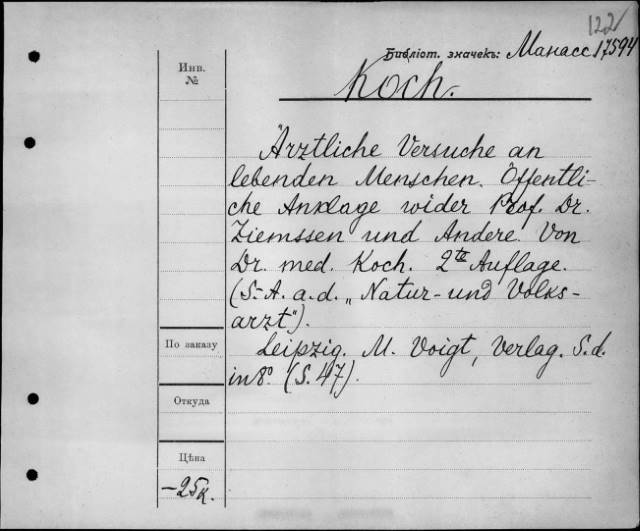 122
Библіот. значекъ: Манасс 17594
Инв.
№
Koch.
Ärztliche Versuche an
lebenden Menschen. Öffentli-
che Anklage wider Prof. Dr.
Ziemssen und Andere. Von
Dr. med. Koch. 2te Auflage.
(S.-A. a. d. „Natur- und Volks-
arzt").
По заказу
Leipzig. M. Voigt, Verlag. S. d.
in 8º. (S. 47).
Откуда
Цѣна
— 25к.